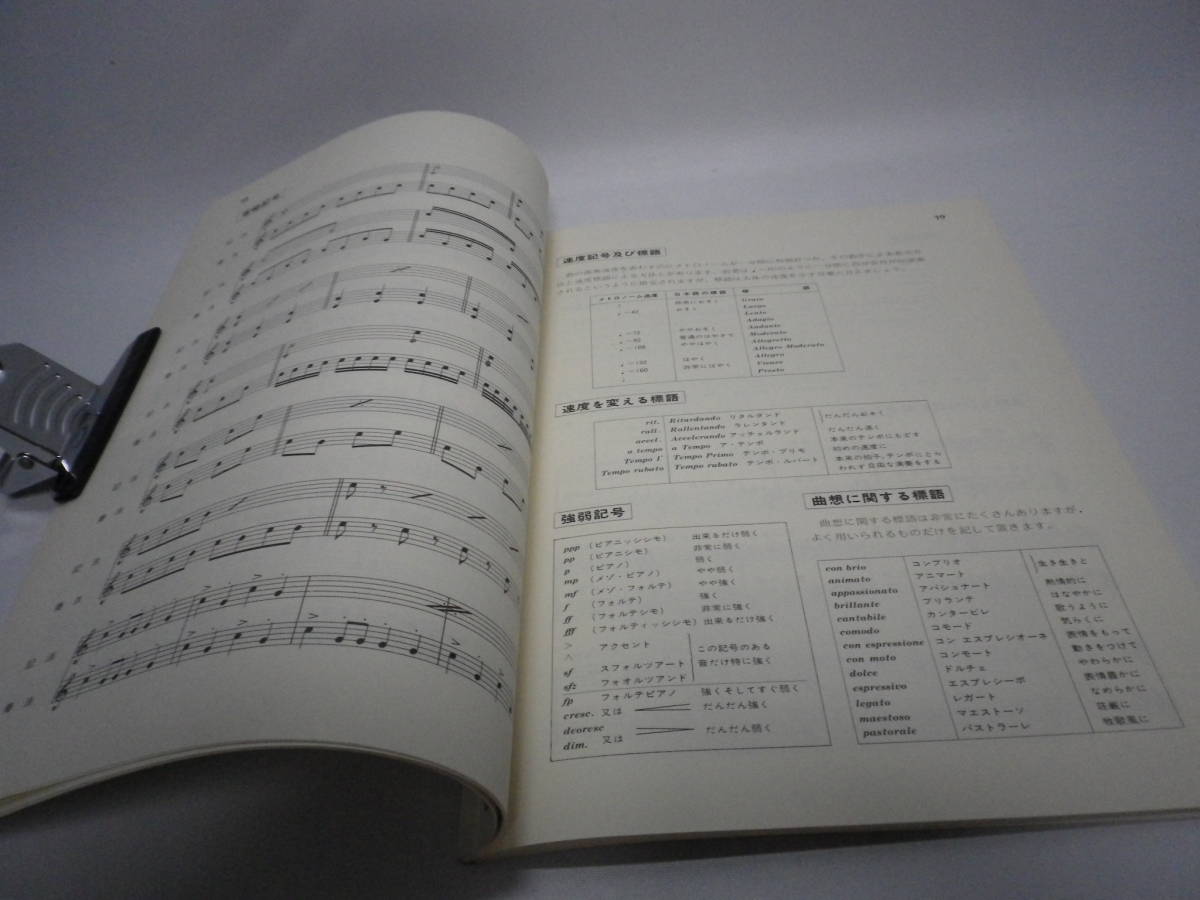 19
速度記号及び標語
メトロノーム速度 日本語の標語 標 語
Grave
非常におそく Largo
おそく Lento
Adagio
ややおそく Andante
普通のはやさで Moderato
ややはやく Allegretto
Allegro Moderato
はやく Allegro
Vivace
非常にはやく Presto
速度を変える標語
rit. Ritardando リタルダンド だんだんおそく
rall. Rallentando ラレンタンド
accel. Accelerando アッチェルランド だんだん速く
a tempo a Tempo ア・テンポ 本来のテンポにもどす
Tempo I° Tempo Primo テンポ・プリモ 初めの速度に
Tempo rubato Tempo rubato テンポ・ルバート 本来の拍子、テンポにとら
われず自由な演奏をする
強弱記号
ppp (ピアニッシシモ) 出来るだけ弱く
pp (ピアニシモ) 非常に弱く
p (ピアノ) 弱く
mp (メゾ・ピアノ) やや弱く
mf (メゾ・フォルテ) やや強く
f (フォルテ) 強く
ff (フォルテシモ) 非常に強く
fff (フォルティッシシモ) 出来るだけ強く
> アクセント この記号のある
∧ 音だけ特に強く
sf スフォルツアート
sfz フォオルツアンド
fp フォルテピアノ 強くそしてすぐ弱く
cresc. 又は だんだん強く
decresc
dim. 又は だんだん弱く
曲想に関する標語
曲想に関する標語は非常にたくさんありますが、
よく用いられるものだけを記して置きます。
con brio コンブリオ 生き生きと
animato アニマート
appassionato アパショナート 熱情的に
brillante ブリランテ はなやかに
cantabile カンタービレ 歌うように
comodo コモード 気らくに
con espressione コン エスプレシオーネ 表情をもって
con moto コンモート 動きをつけて
dolce ドルチェ やわらかに
espressivo エスプレシーボ 表情豊かに
legato レガート なめらかに
maestoso マエストーソ 荘厳に
pastorale パストラーレ 牧歌風に